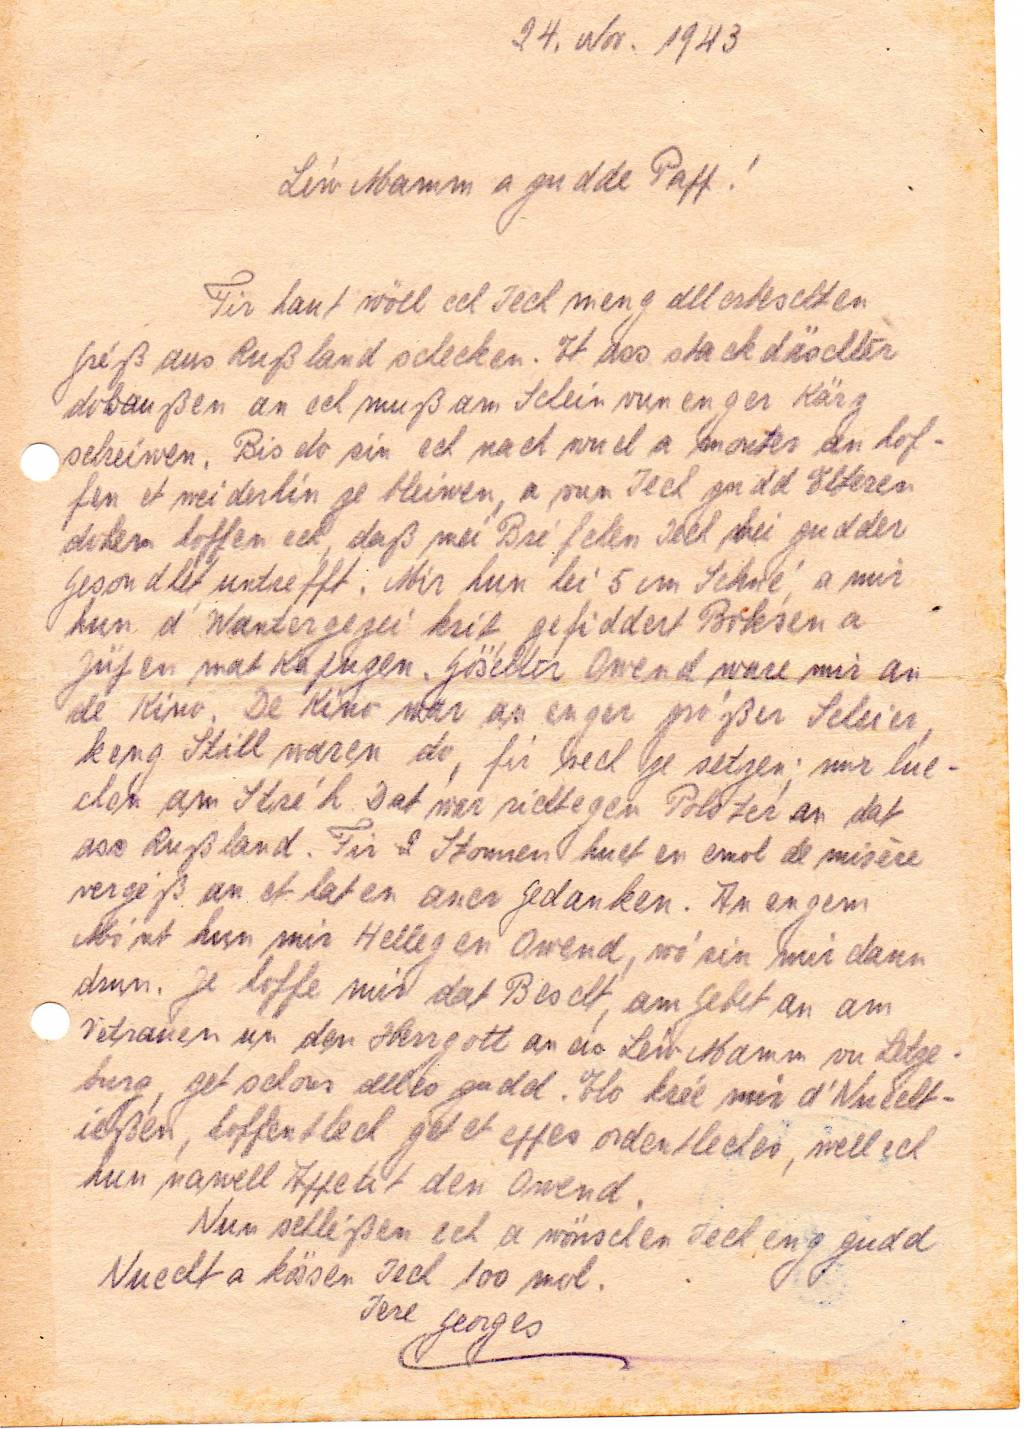 24. Nov. 1943
Léiw Mamm a gudde Papp!
Fir haut wöll ech Iech meng allerbeschten
Gréß aus Rußland schecken. Et ass stackdäschter
dobaußen an ech muß am Schein vun enger Kärz
schreiwen. Bis do sin ech nach wuel a monter an hof-
fen et weiderhin ze bleiwen, a vun Iech gudd Elteren
dohem hoffen ech, daß mei Bréifchen Iech bei gudder
Gesondhét untrëfft. Mir hun hei 5 cm Schné, a mir
hun d'Wantergezei krit, gefiddert Boksen a
Jüpen mat Kapuzen. Göschter Owend ware mir an
de Kino. De Kino war an enger größer Scheier,
keng Still waren do, fir sech ze setzen; mir lue-
chen am Stréh. Dat war richtegen Polster an dat
ass Rußland. Fir 2 Stonnen huet en emol de misère
vergéß an et hat en aner Gedanken. An engem
Mó'nt hun mir Hellegen Owend, wó sin mir dann
drun. Je hoffe mir dat Bescht, am Gebet an am
Vetrauen un den Herrgott an eis Léiw Mamm vu Letze-
burg, get schons alles gudd. Elo kréie mir d'Nuecht-
ießen, hoffentlech gét et eppes ordentleches, well ech
hun nawell Appetit den Owend.
Nun schléßen ech a wönschen Iech eng gudd
Nuecht a kössen Iech 100 mol.
Iere Georges